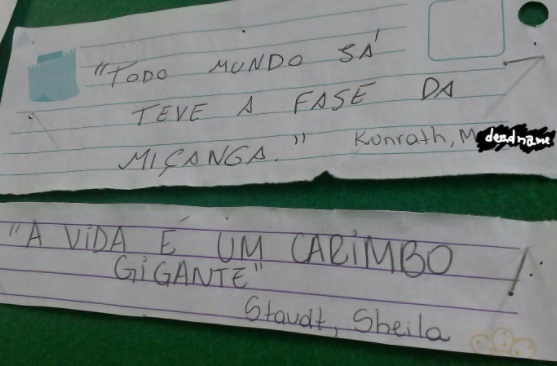 "TODO MUNDO SÁ
TEVE A FASE DA
MIÇANGA."
Konrath, M deadname
"A VIDA É UM CARIMBO
GIGANTE"
Staudt, Sheila